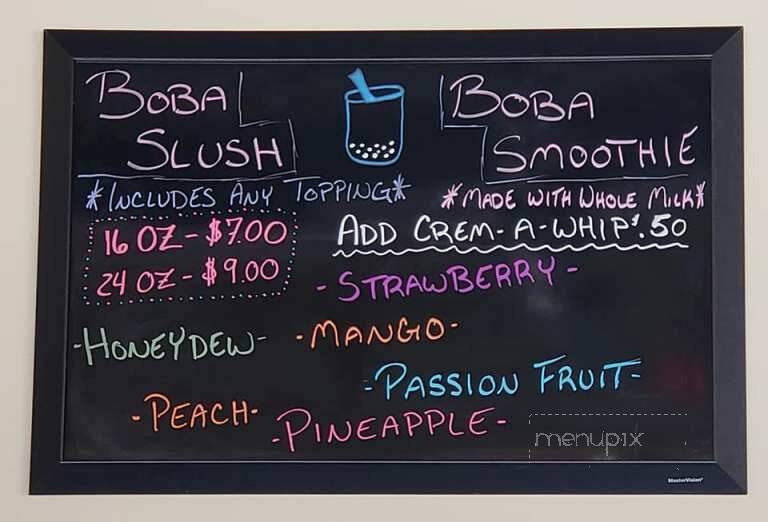 BOBA
SLUSH
BOBA
SMOOTHIE
*INCLUDES ANY TOPPING*
*MADE WITH WHOLE MILK*
16 OZ - $7.00
24 OZ - $9.00
ADD CREM-A-WHIP $.50
-STRAWBERRY-
-HONEYDEW-
-MANGO-
-PASSION FRUIT-
-PEACH-
-PINEAPPLE-
menupix
MasterVision